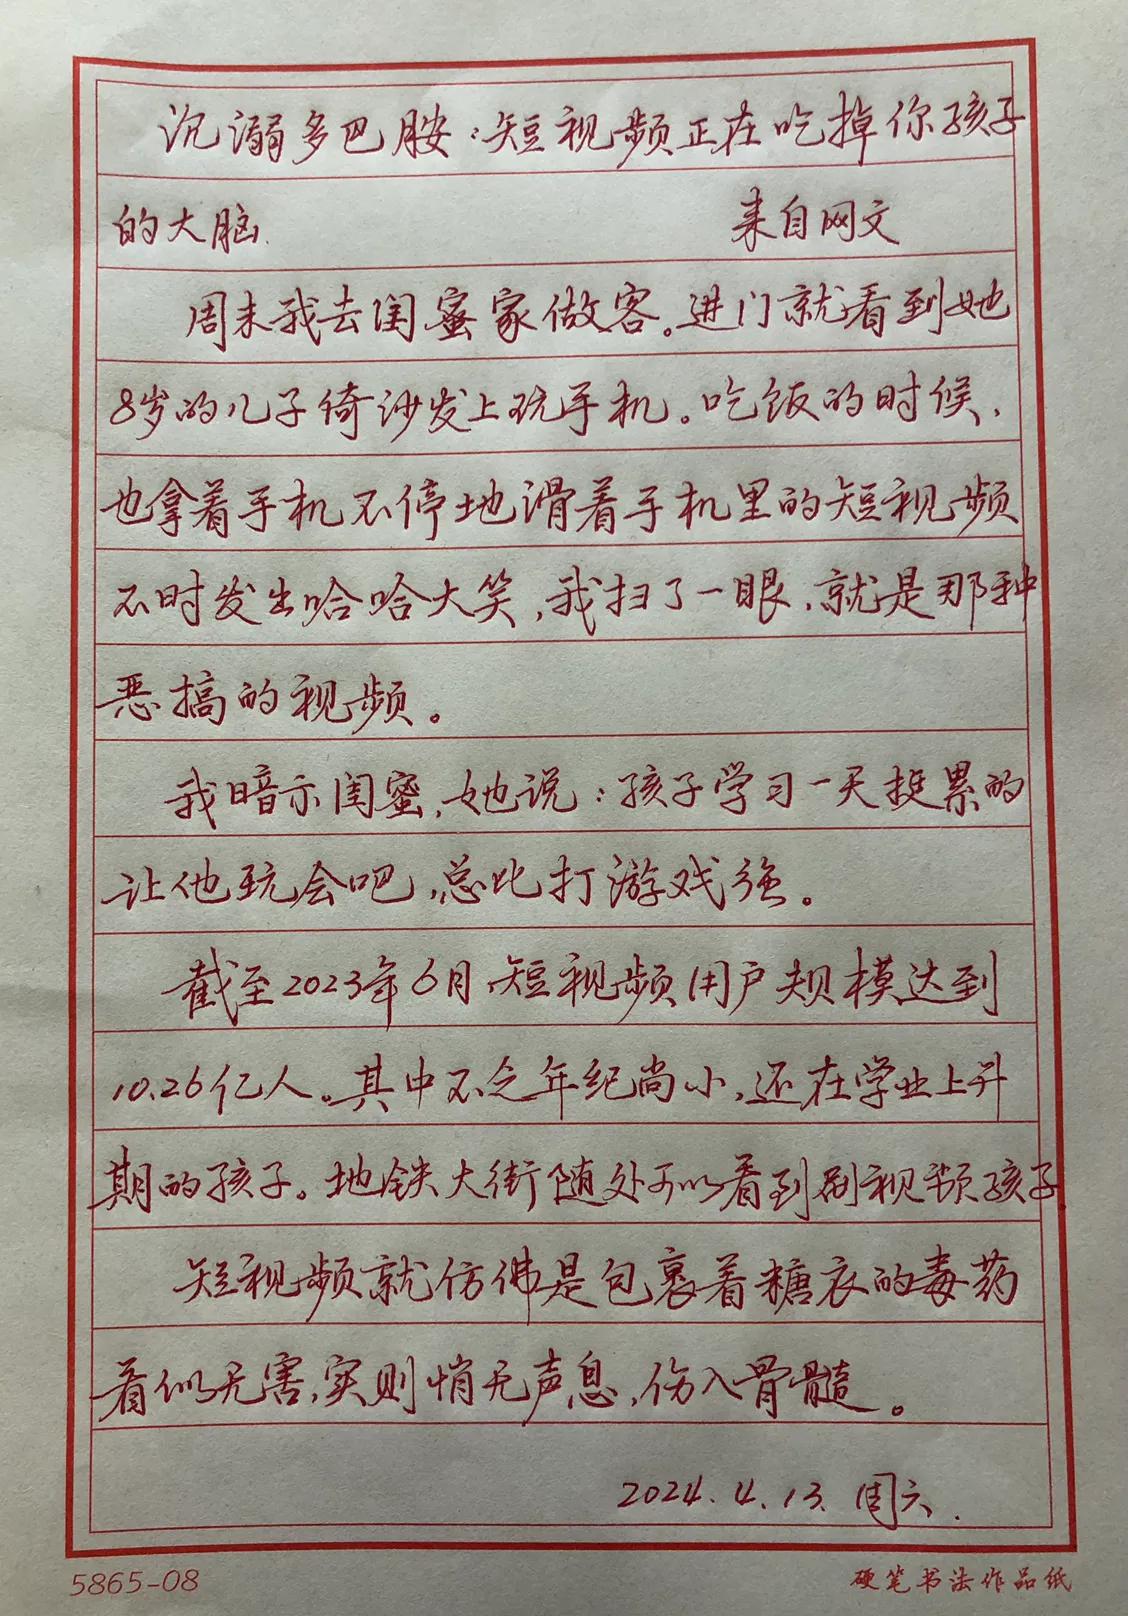 沉溺多巴胺：短视频正在吃掉你孩子
的大脑.
来自网文
周末我去闺蜜家做客。进门就看到她
8岁的儿子倚沙发上玩手机。吃饭的时候，
也拿着手机不停地滑着手机里的短视频
不时发出哈哈大笑，我扫了一眼，就是那种
恶搞的视频。
我暗示闺蜜，她说：孩子学习一天挺累的
让他玩会吧，总比打游戏强。
截至2023年6月短视频用户规模达到
10.26亿人。其中不乏年纪尚小，还在学业上升
期的孩子。地铁大街随处可以看到刷视频孩子
短视频就仿佛是包裹着糖衣的毒药
看似无害，实则悄无声息，伤入骨髓。
2024.4.13.周六.
5865-08
硬笔书法作品纸